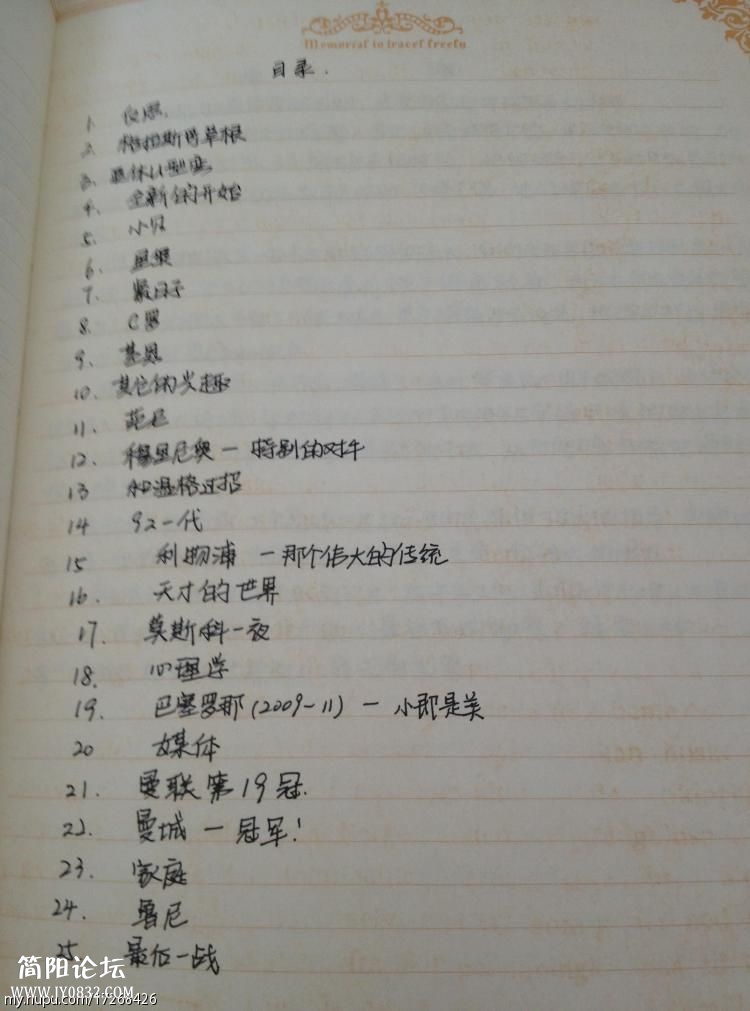 Memorial to travel freely
目录.
1. 反思.
2. 格拉斯哥草根
3. 退休U型变
4. 全新的开始
5、小贝
6、里奥
7、紧日子
8. C罗
9、基恩
10、其它的兴趣
11、范尼
12、穆里尼奥一特别的对手
13 和温格过招
14 92一代
15 利物浦一那个伟大的传统
16. 天才的世界
17. 莫斯科一夜
18. 心理学
19. 巴塞罗那(2009-11)一小即是美
20 媒体
21. 曼联第19冠.
22. 曼城一冠军!
23. 家庭
24. 鲁尼
25 最后一战
简阳论坛
www.JY0832.com
my.hupu.com/17266426